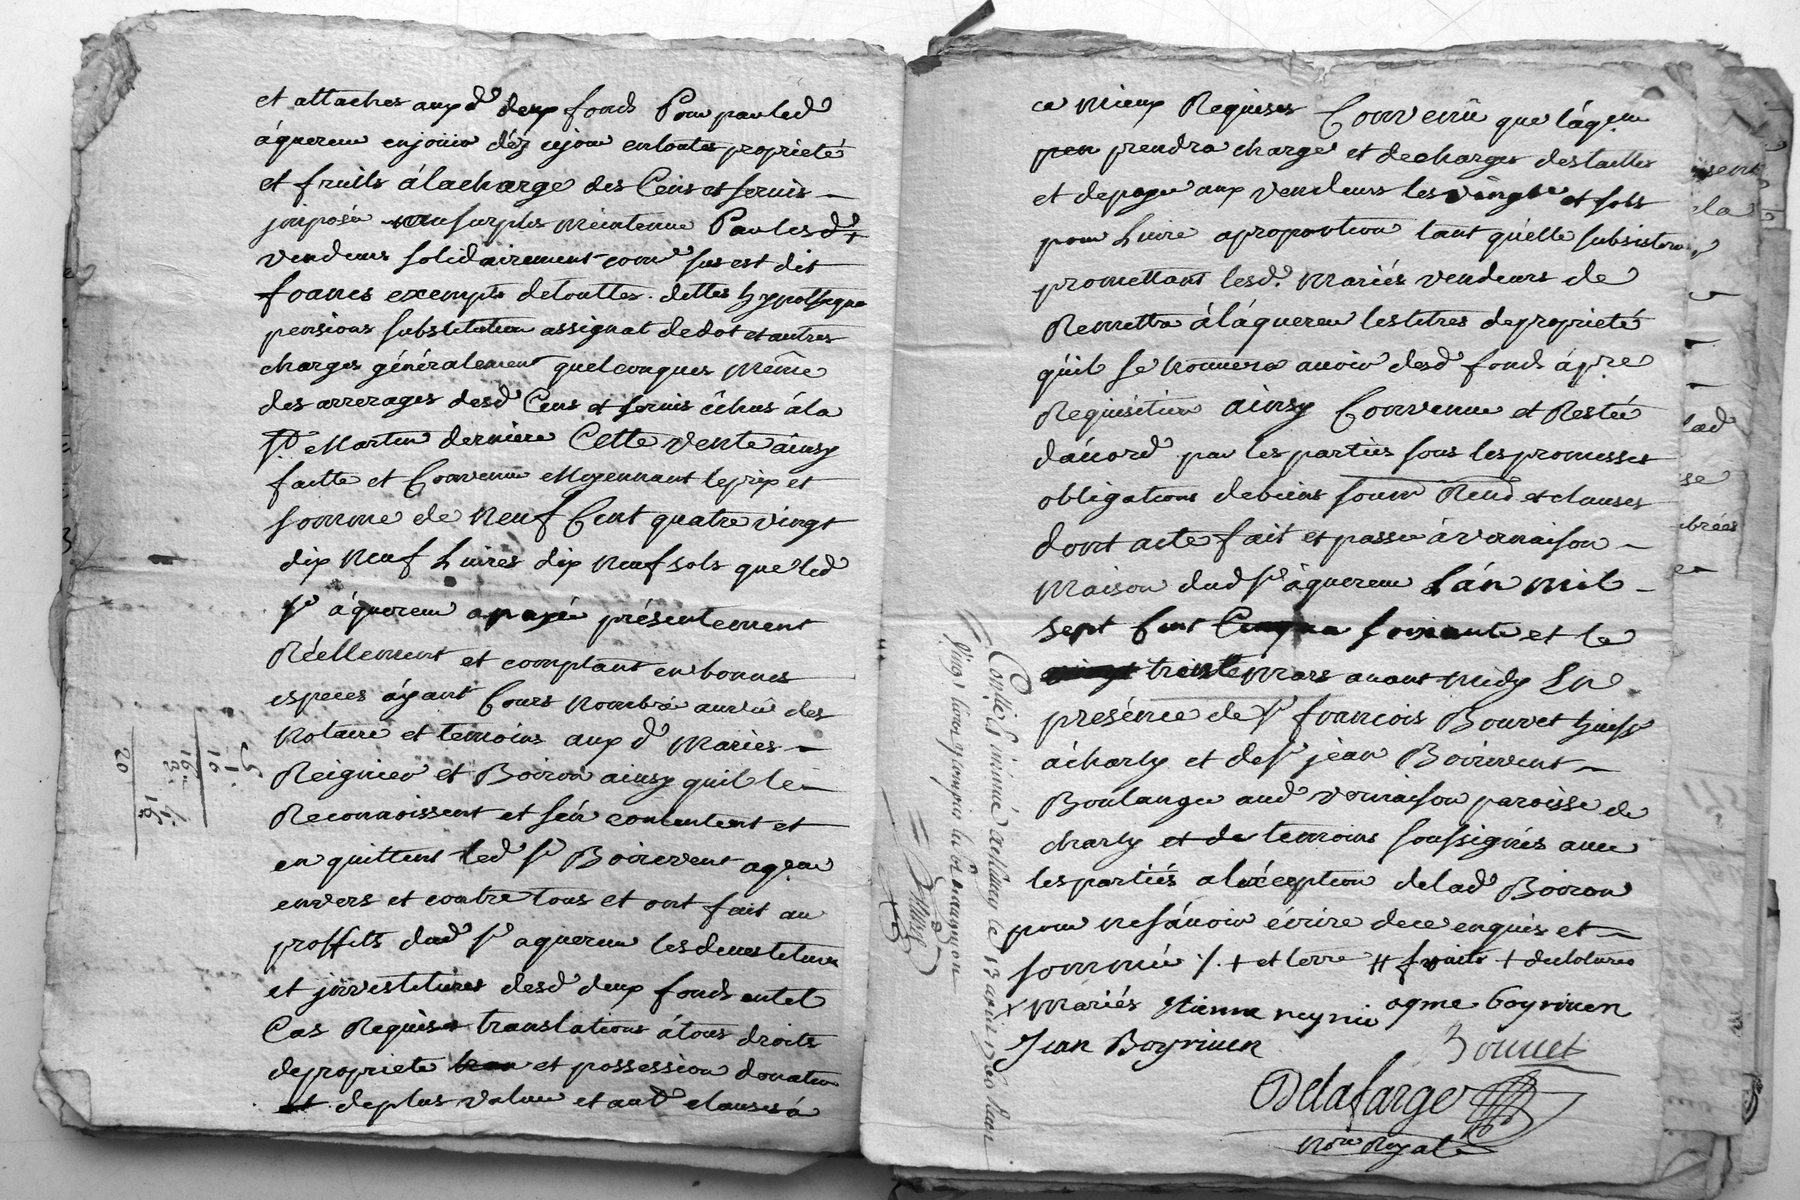 et attaches auxd deux fonds Pour par led
áquereur en joüir déz cejour en toutte proprieté
et fruits á la charge des Cens et servis
jmposés au surplus maintenue Par lesd +
vendeurs solidairement comē sus est dit
francs exempts de touttes dettes hypotheque
pensions substitution assignat de dot et autres
charges généralement quelconques Même
des arrerages desd Cens et servis échus á la
St Martin derniére Cette vente ainsy
faitte et Convenue Moyennant le prix et
somme de Neuf Cent quatre vingt
dix Neuf Livres dix Neuf sols que led
Sr áquereur a payé présentement
Réellement et comptant en bonnes
especes áyant Cours Nombré au vû des
Notaire et temoins auxd Mariés
Reignier et Boiron ainsy quil le
Reconnoissent et s'en contentent et
en quittent led Sr Boirivent aqeur
envers et contre tous et ont fait au
proffits dud Sr aquereur les devestitures
et jnvestitures desd deux fonds en tel
Cas Requises translations á tous droits
de proprieté et possession donation
de plus value et autē clauses á
ce Mieux Requises Convenû que l'áqeur
prendra charge et decharges des tailles
et de payer aux vendeurs les vingt et sols
pour Livre a proportion tant qu'elle subsistera
promettant lesd. Mariés vendeurs de
Remettre á l'áquereur les titres de proprieté
qu'il se trouvera avoir desd fonds á pre
Requisition ainsy Convenue et Resté
d'acord par les parties sous les promesses
obligations de biens soum Renō et clauses
dont acte fait et passé á vernaison
Maison dud Sr áquereur L'án mil
sept Cent soixante et le
trente Mars avant midy En
presénce de Sr francois Bouvet huissr
á charly et de Sr jean Boirivent
Boulanger aud vernaison paroisse de
charly et de temoins soussignés avec
les partiés a l'exception de lad Boiron
pour ne sçávoir écrire de ce enquis et
sommé /. + et terre # fruits + declotures
x Mariés Etienne reynie ayme boyriven
Jean Boyriven Bouvet
Delafarge
Nore Royal
Contllé &